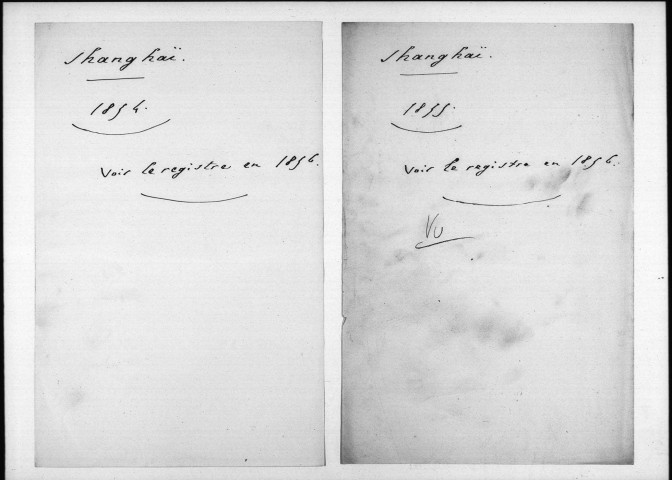 Shanghaï.
1854.
Voir le registre en 1856.
Shanghaï.
1855.
Voir le registre en 1856.
Vu